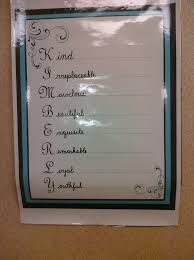 Kind
Irreplaceable
Marvelous
Beautiful
Exquisite
Remarkable
Loyal
Youthful